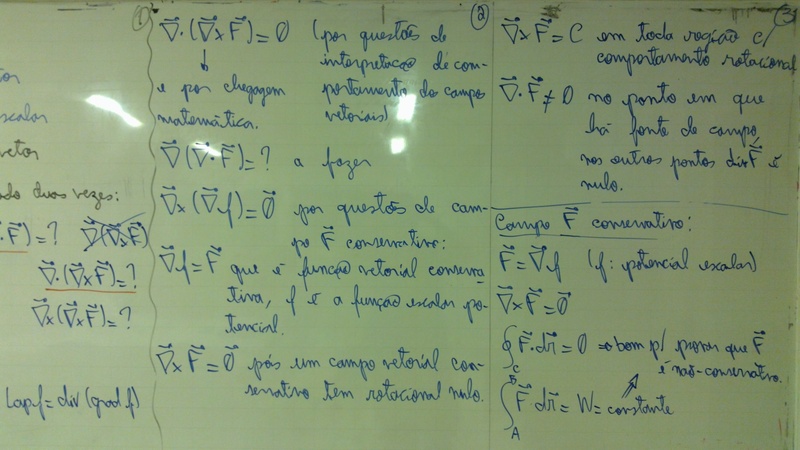 ①
tor
escalar
vetor
ado duas vezes:
·F⃗)=? ∇⃗(∇⃗xF⃗)
∇⃗·(∇⃗xF⃗)=?
∇⃗x(∇⃗xF⃗)=?
Lapf=div(grad f)
②
∇⃗·(∇⃗xF⃗)=0 (por questões de
interpretação de com-
e por chegagem portamento do campo
matemática. vetorial)
∇⃗(∇⃗·F⃗)=? a fazer
∇⃗x(∇⃗f)=0⃗ por questões de cam-
po F⃗ conservativo:
∇⃗f=F⃗ que é função vetorial conserva-
tiva, f é a função escalar po-
tencial.
∇⃗xF⃗=0⃗ pós um campo vetorial con-
servativo tem rotacional nulo.
③
∇⃗xF⃗=C em toda região c/
comportamento rotacional
∇⃗·F⃗≠0 no ponto em que
há fonte de campo,
nos outros pontos divF⃗ é
nulo.
Campo F⃗ conservativo:
F⃗=∇⃗f (f: potencial escalar)
∇⃗xF⃗=0⃗
∮_C F⃗·dr⃗=0 ⇒ bom p/ provar que F⃗
é não-conservativo.
∫_A^B F⃗·dr⃗=W=constante